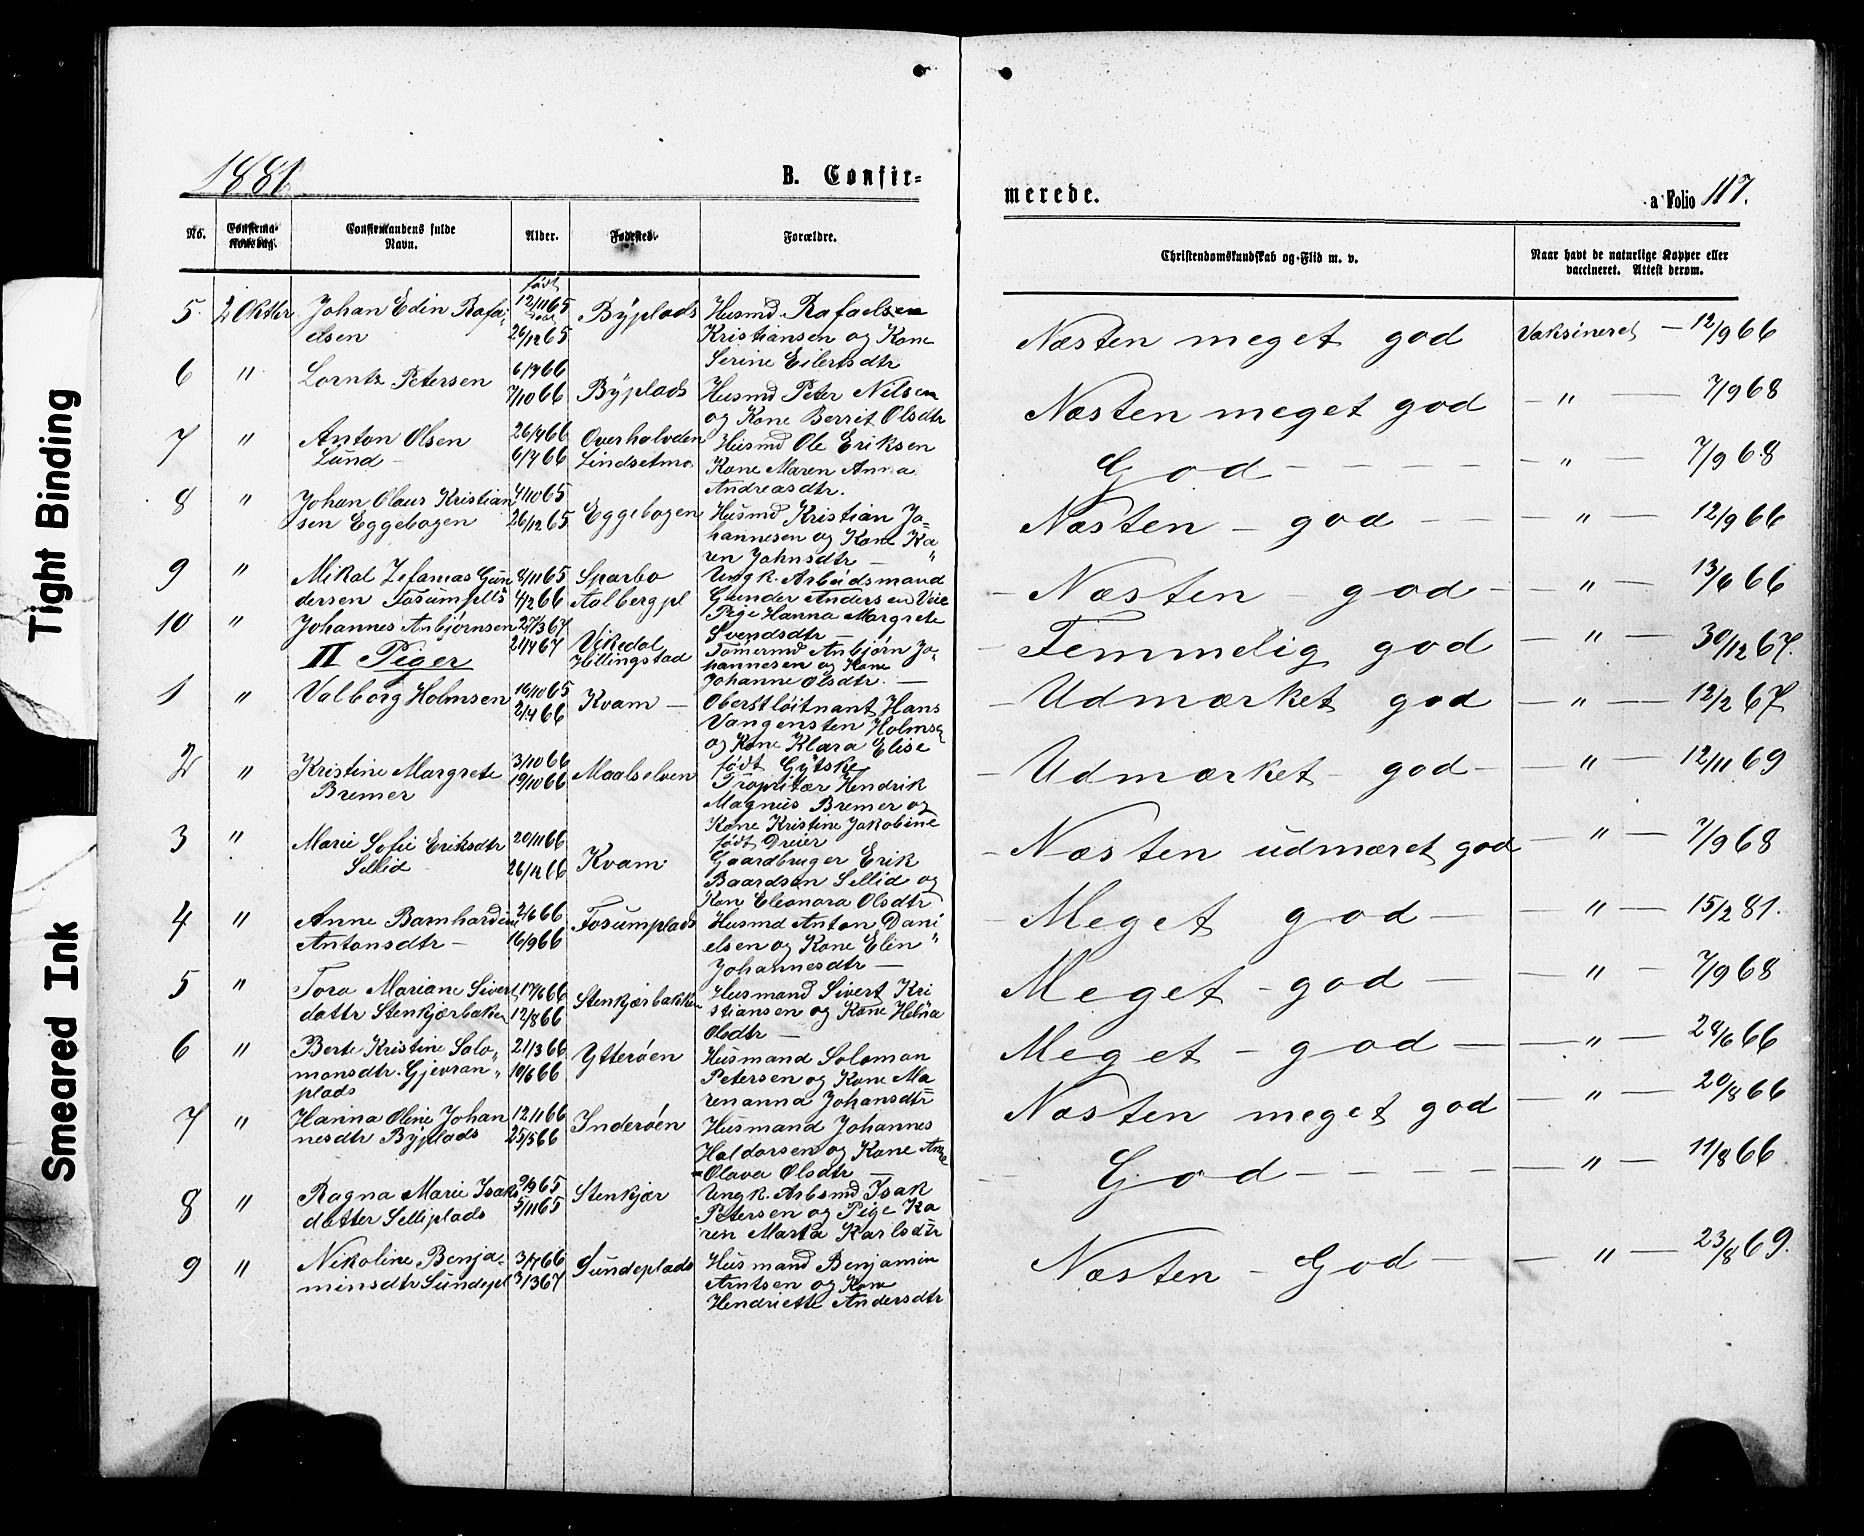 Tight Binding
Smeared Ink
1881
B. Confir-
merede.
a Folio 117.
No.
Confirma-
tionsdag.
Confirmandens fulde
Navn.
Alder.
Fødested.
Forældre.
Christendomskundskab og Flid m. v.
Naar havt de naturlige Kopper eller
vaccineret. Attest derom.
5. 2 Oktbr Johan Edin Rafa-
elsen
født 12/11 65
26/12 65
Byplads
Husmd. Rafaelsen
Kristiansen og Kone
Serine Eilertsdtr
Næsten meget god
Vaksineret — 12/9 66
6 " Lorntz Petersen
6/7 66
7/10 66
Byplads
Husmd Peter Nilsen
og Kone Berrit Olsdtr
Næsten meget god
— " — 7/9 68
7 " Anton Olsen
Lund —
26/4 66
6/7 66
Overhalvden
Lindsetmo
Husmd Ole Eriksen
Kone Maren Anna
Andreasdtr.
God — — — —
— " — 7/9 68
8 " Johan Olaus Kristian
sen Eggebogen
4/10 65
26/12 65
Eggebogen
Husmd Kristian Jo-
hannesen og Kone Ka
"
ren Johnsdtr —
Næsten — god — —
— " — 12/9 66
9 " Mikal Zefanias Gun
dersen Fosumpells
8/11 65
4/2 66
Sparbo
Aalberg pl
Ungk. Arbeidsmand
Gunder Andersen Veie
Pige Hanna Margrete
Svendsdtr —
— Næsten — god —
— " — 13/6 66
10 " Johannes Anbjørnsen
27/3 67
21/4 67
Vikedal
Hillingstad
Tømermd Anbjørn Jo-
hannesen og Kone
Johanne Olsdtr. —
— Temmelig god
— " — 30/12 67.
II Piger
1 " Valborg Holmsen
16/10 65
2/4 66
Kvam —
Oberstløitnant Hans
Vangensten Holmsen
og Kone Klara Elise
født Gytske
— Udmærket god
— " — 12/2 67
2 " Kristine Margrete
Bremer
3/10 66
19/10 66
Maalselven
Propritær Hendrik
Magnus Bremer og
Kone Kristine Jakobine
født Dreier
— Udmærket — god —
— " — 12/11 69
3 " Marie Sofie Eriksdtr
Sellid
20/11 66
26/12 66
Kvam
Gaardbruger Erik
Baardsen Sellid og
Kon Eleonora Olsdtr
— Næsten udmæret god
— " — 7/9 68
4 " Anne Barnhardine
Antonsdtr —
2/6 66
16/9 66
Fosumplads
Husmd Anton Dani
elsen og Kone Elen "
Johannesdtr —
— Meget god —
— " — 15/2 81.
5 " Tora Mariane Sivert
dattr Stenkjærbaken
17/6 66
12/8 66
Stenkjærbakken
Husmand Sivert Kri
stiansen og Kone Helna
Olsdtr —
Meget — god —
— " — 7/9 68
6 " Berte Kristine Salo„
monsdtr. Gjevran„
plads
21/3 66
10/6 66
Ytterøen
Husmand Soloman
Petersen og Kone Ma
renanna Johansdtr
Meget — god —
— " — 24/6 66
7 " Hanna Oline Johan
nesdtr Byplads
12/1 66
25/5 66
Inderøen
Husmand Johannes
Haldorsen og Kone Anne
Olava Olsdtr —
Næsten meget god
— " — 20/8 66
8 " Ragna Marie Isaks
datter Selliplads
9/9 65
5/11 65
Stenkjær
Ungk. Arbsmd Isak
Petersen og Pige Ka
ren Marta Karlsdtr
— God — — — —
— " — 11/8 66
9 " Nikoline Benja-
minsdtr Sundepl
3/7 66
3/3 67
Sundeplads
Husmand Benjamin
Arntsen og Kone
Hendriette Andersdtr
Næsten — God —
— " — 23/8 69.